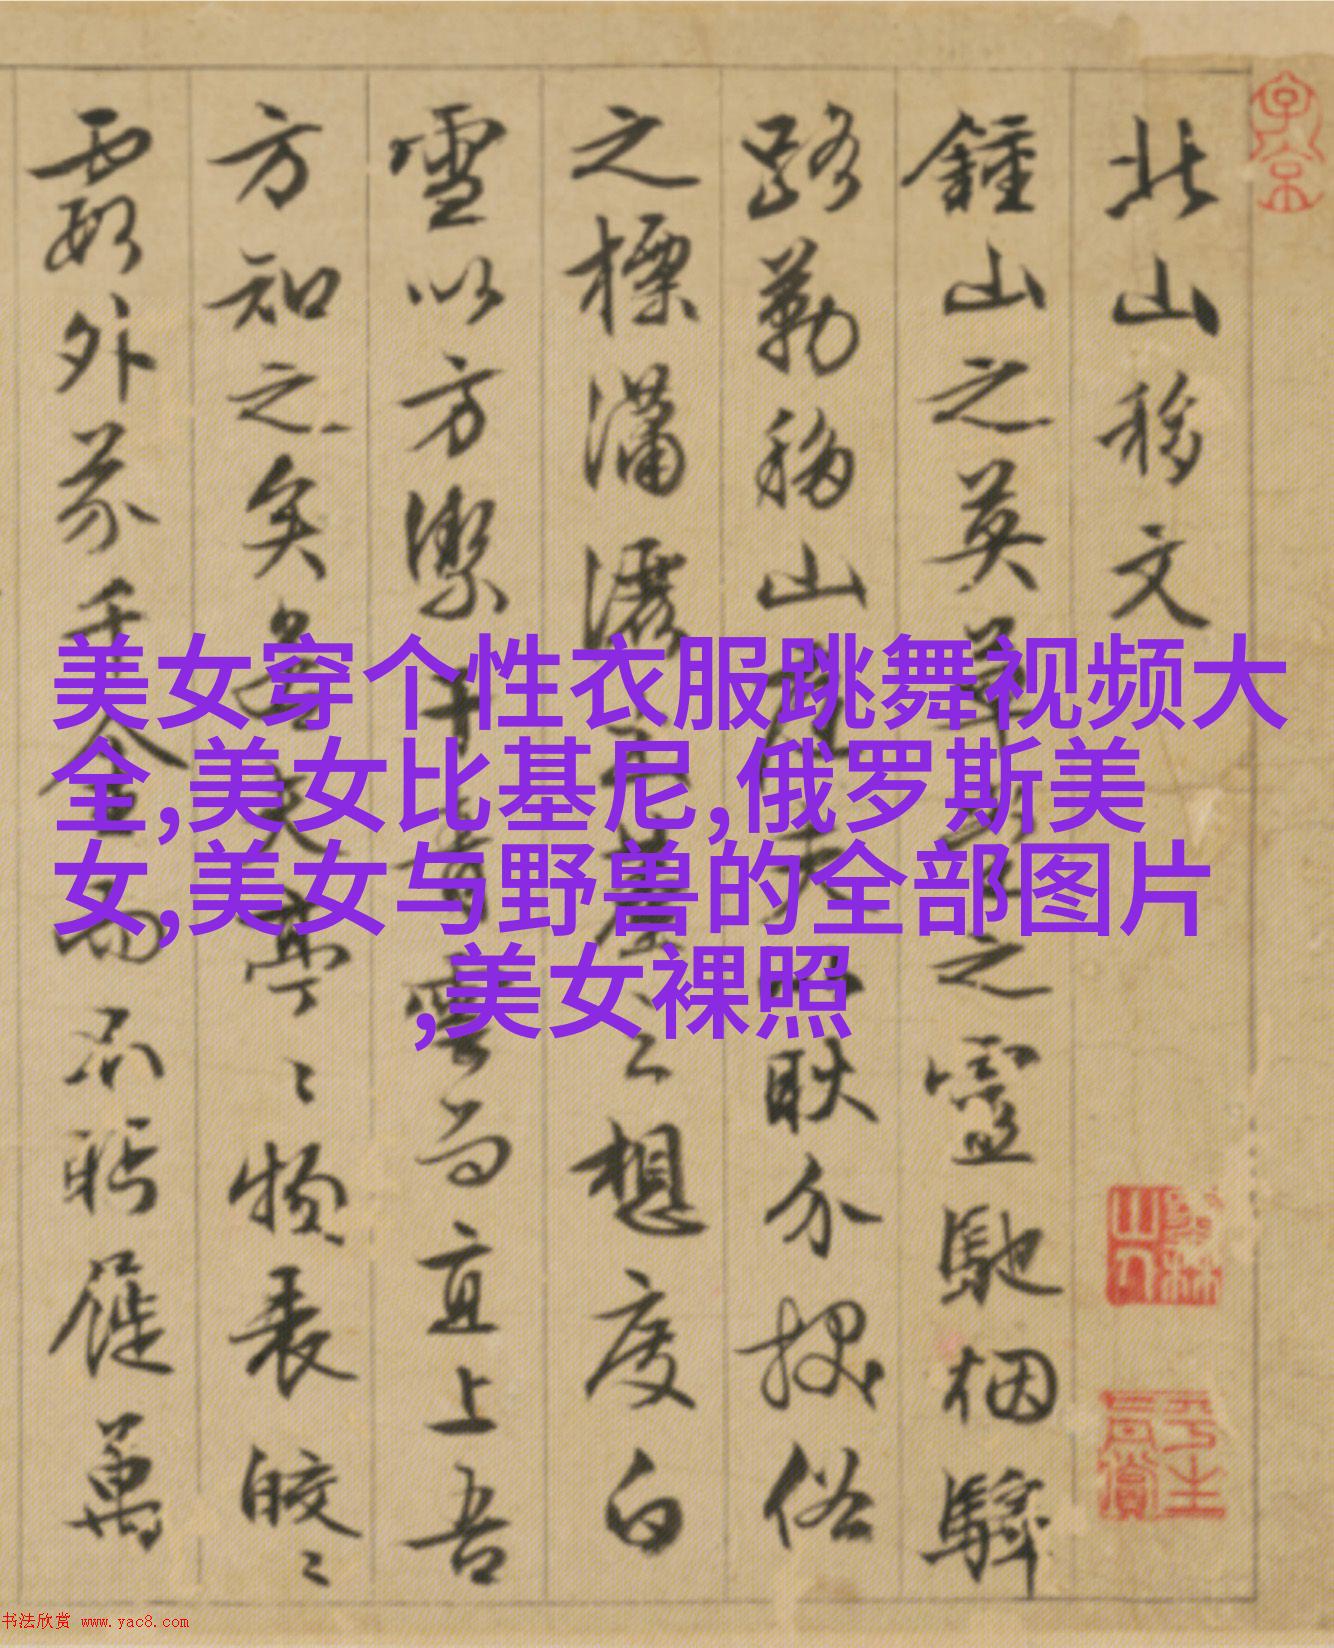 北山移文
鍾山之英草堂之靈馳烟驛
路勒移山庭夫以耿介拔俗
之標瀟灑出塵之想度白
雪以方潔干青雲而直上吾
方知之矣若其亭亭物表皎皎
霞外芥千金而不眄屣萬
美女穿个性衣服跳舞视频大
全,美女比基尼,俄罗斯美
女,美女与野兽的全部图片
,美女裸照
书法欣赏 www.yac8.com